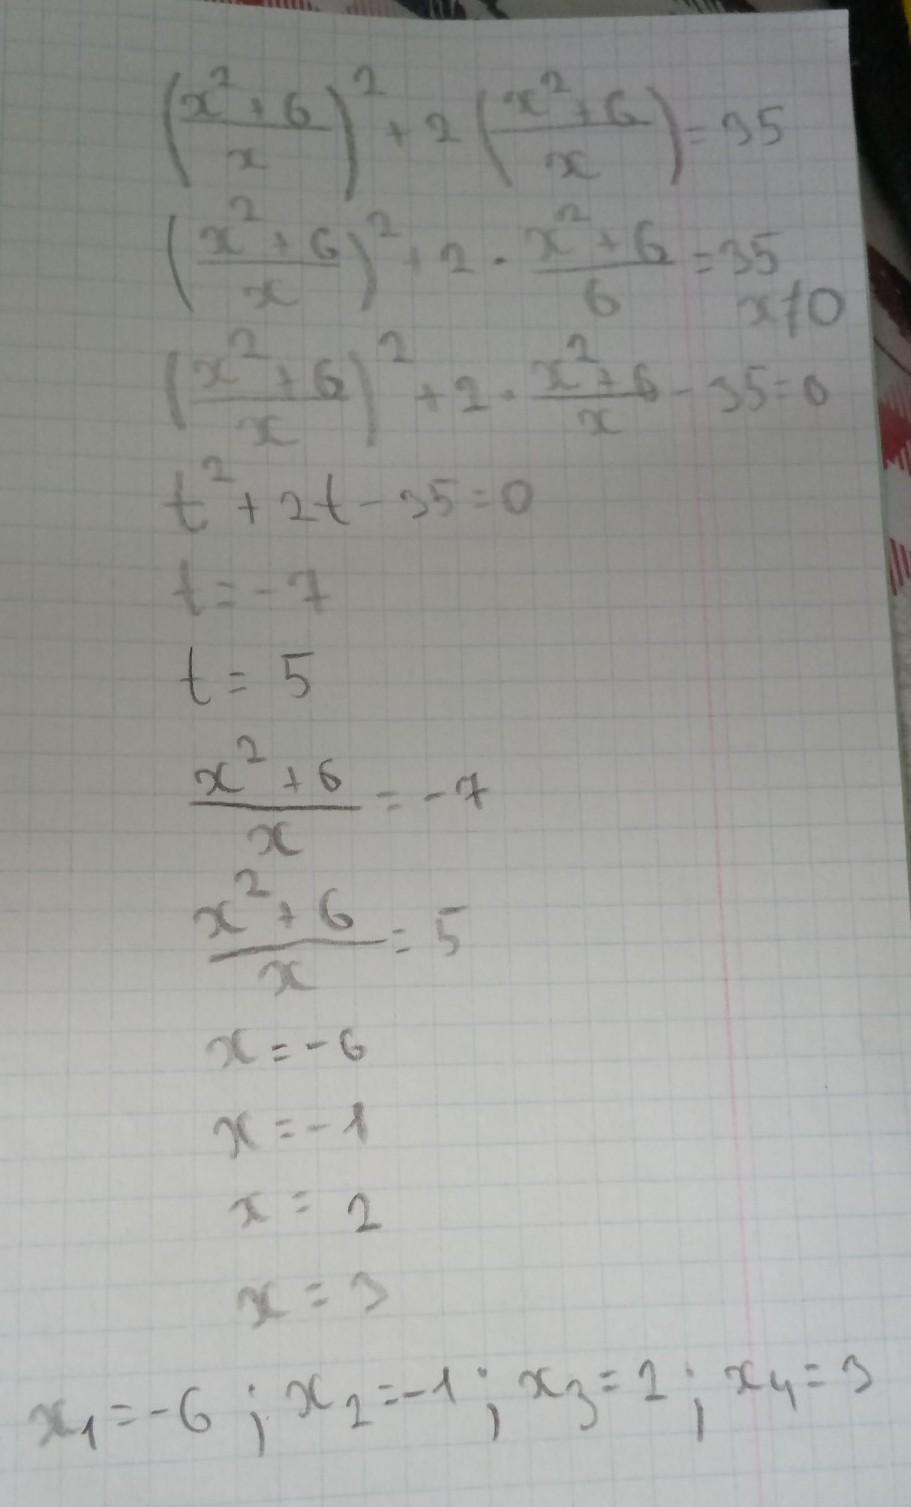 (x²+6/x)² + 2(x²+6/x) = 35
(x²+6/x)² + 2 · x²+6/6 = 35
x≠0
(x²+6/x)² + 2 · x²+6/x - 35 = 0
t² + 2t - 35 = 0
t = -7
t = 5
x²+6/x = -7
x²+6/x = 5
x = -6
x = -1
x = 2
x = 3
x₁ = -6 ; x₂ = -1 ; x₃ = 2 ; x₄ = 3